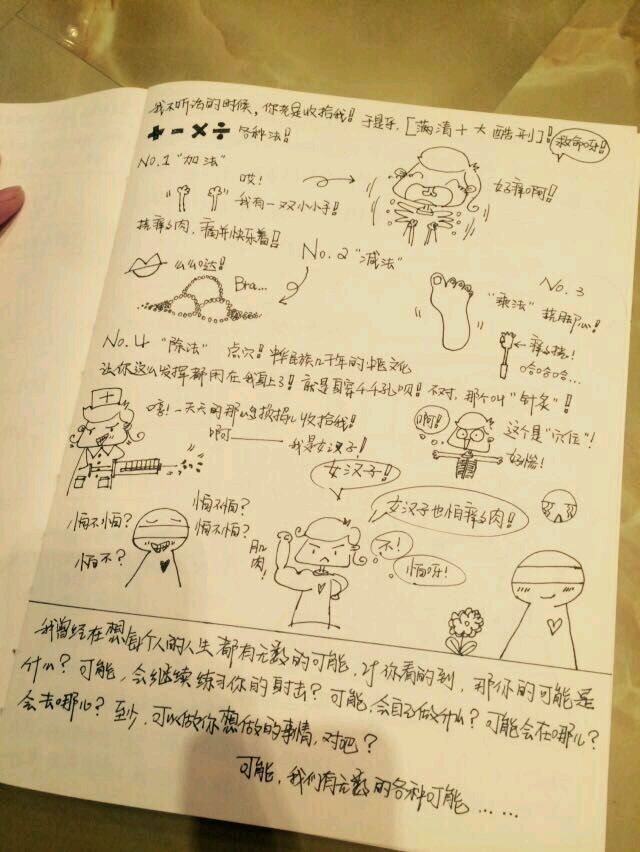 我不听话的时候,你老是收拾我!于是乎,[满清十大酷刑]!
救命呀!
+ − × ÷ 各种法!
No.1 "加法"
哎!
我有一双小小手!
好痒啊!
挠痒肉,痛并快乐着!!
No.2 "减法"
么么哒!
Bra...
No.3
"乘法" 挠脚心!
← 痒挠!
哈哈哈...
No.4 "除法" 点穴!中华民族几千年的中医文化
让你这么发挥都用在我身上了!就是身穿千孔呗!不对,那个叫"针灸"!!
唉!一天天的那么损招儿收拾我!
啊—— 我是女汉子!
啊!
这个是"穴位"!
好惨!
女汉子!
女汉子也怕痒肉!!
怕不怕?
怕不怕?
怕不怕?
怕不?
肌肉!
不!
怕呀!
我曾经在想每个人的人生都有无数的可能,对你看的到,那你的可能是
什么?可能,会继续练习你的射击?可能,会自己做什么?可能会在哪儿?
会去哪儿?至少,可以做你想做的事情,对吧?
可能,我们有无数的各种可能......